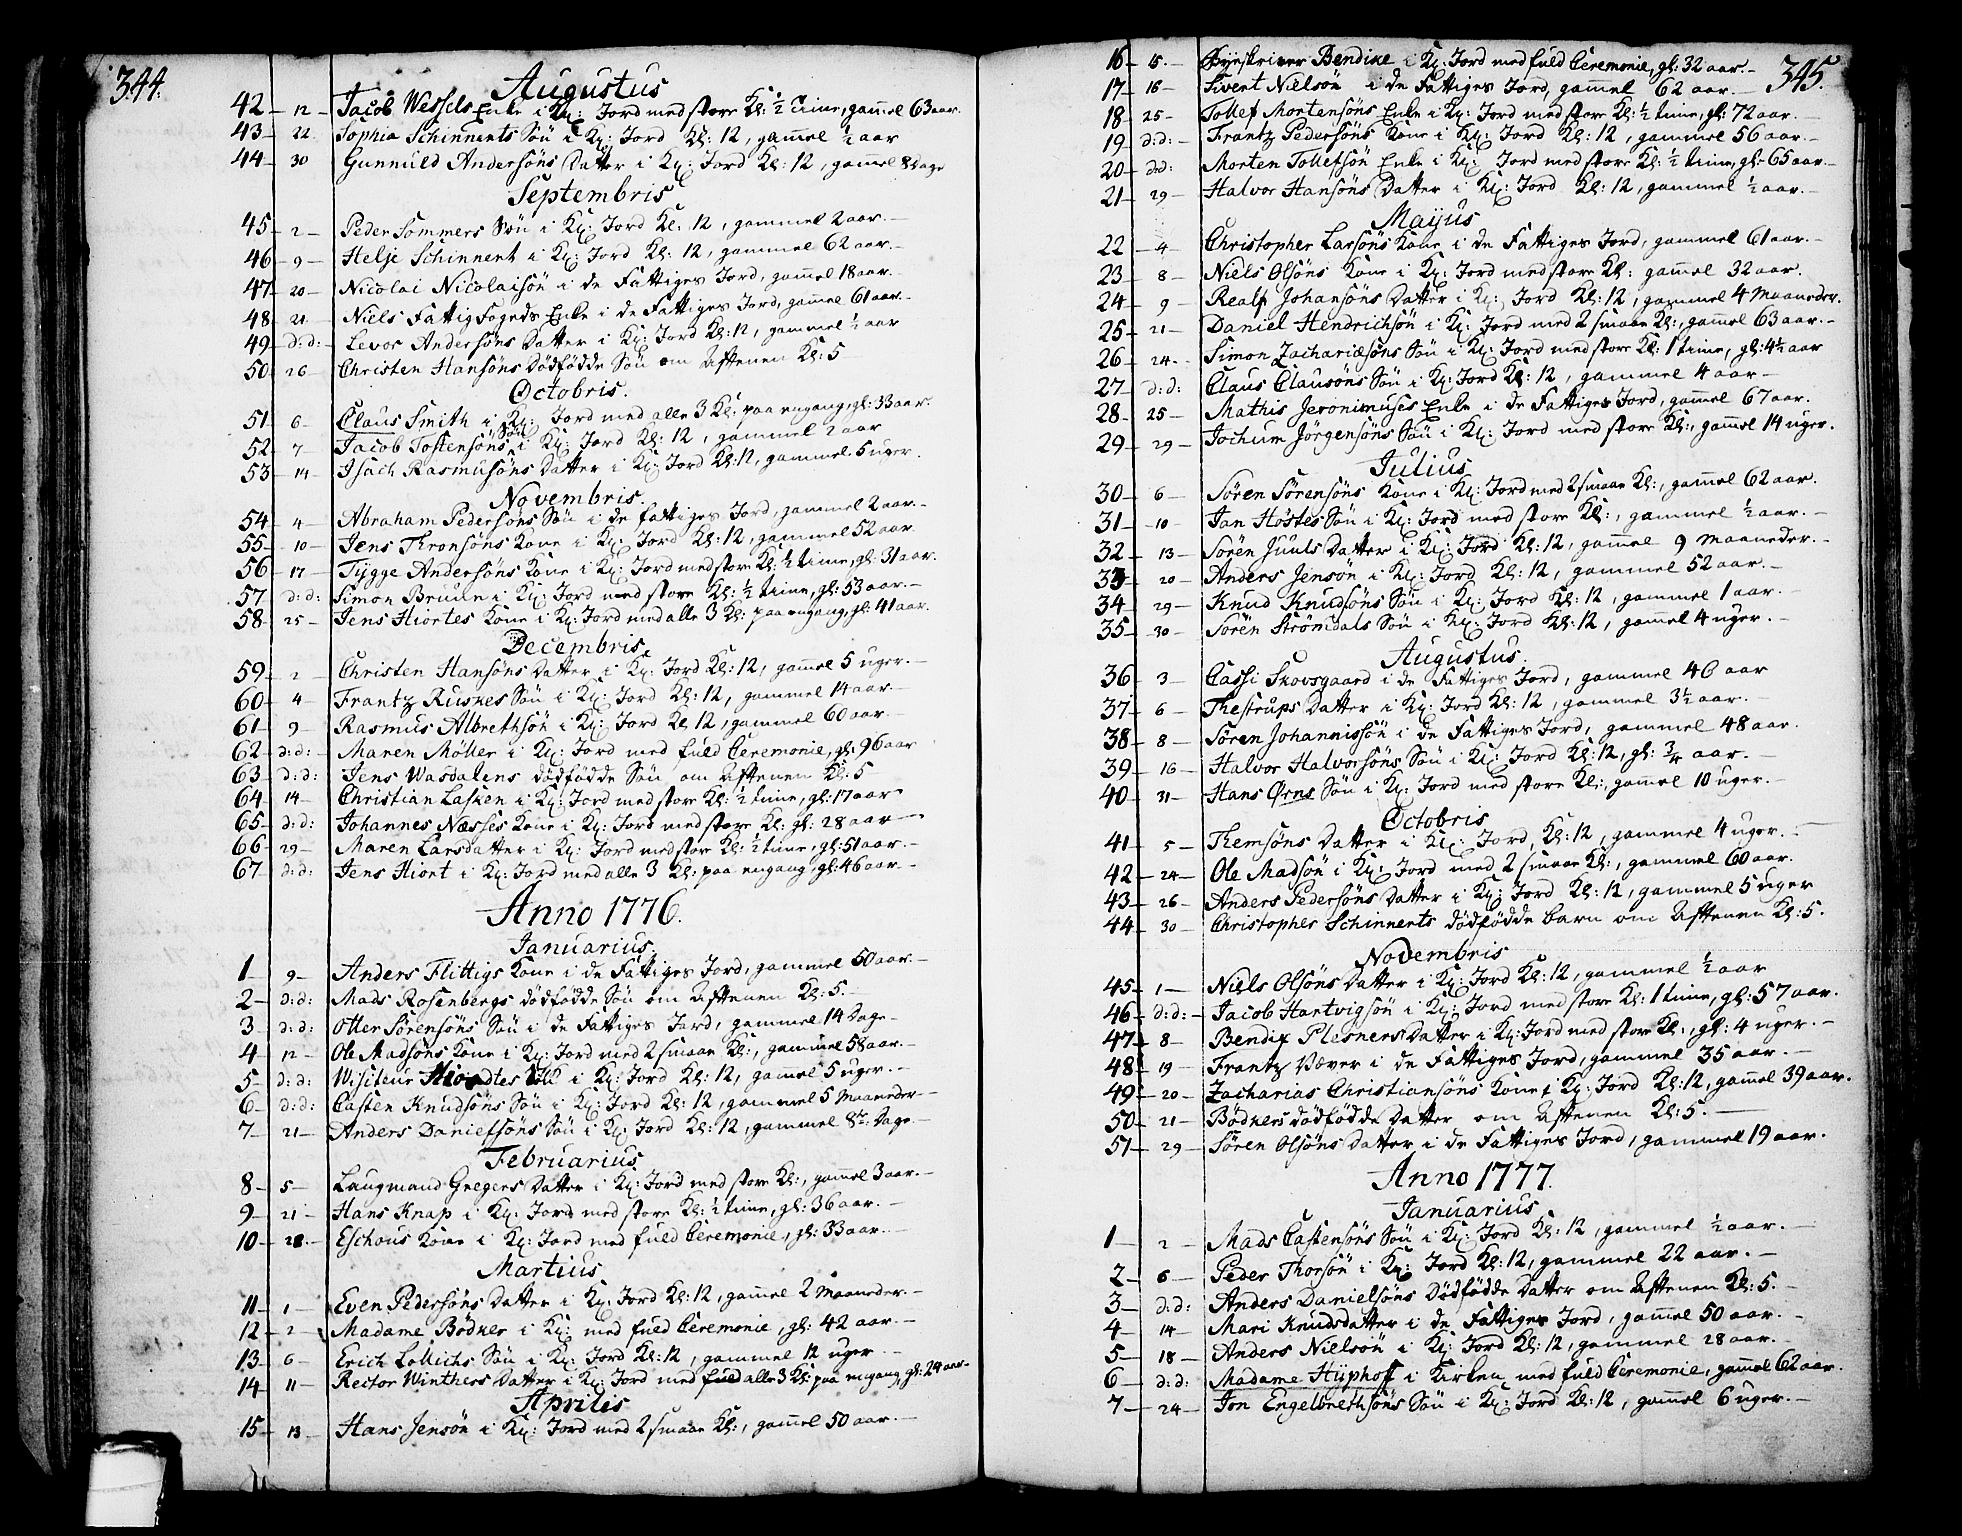 344.
Augustus
42 – 12 – Jacob Wessels Enke i Kỿ: Jord med store Kl: ½ time, gam̄el 63 aar.
43 – 22 Sophia Schinnents Søn i Kỿ: Jord Kl: 12, gam̄el ½ aar
44 – 30 Gunnuld Andersøns Datter i Kỿ: Jord Kl: 12, gam̄el 8 dage
Septembris
45 – 2 – Peder Sommers Søn i Kỿ: Jord Kl: 12, gammel 2 aar. –
46 – 9 – Helje Schinnent i Kỿ: Jord Kl: 12, gammel 62 aar. –
47 – 20 – Nicolai Nicolaisøn i de Fattiges Jord, gam̄el 18 aar. –
48 – 21 – Niels FattigFogeds Enke i de Fattiges Jord, gam̄el 61 aar. –
49 – d: d: – Levor Andersøns Datter i Kỿ: Jord Kl: 12, gammel ½ aar
50 – 26 – Christen Hansøns dødfødde Søn om Aftenen Kl: 5 –
Octobris.
51 – 6 – Claus Smith i Kỿ: Jord med alle 3 Kl: paa engang, gl: 33 aar.
52 – 7 – Jacob Tostensøns Søn i Kỿ: Jord Kl: 12, gammel 2 aar
53 – 14 – Isach Rasmusøns Datter i Kỿ: Jord Kl: 12, gammel 5 uger.
Novembris.
54 – 4 – Abraham Pedersøns Søn i de fattiges Jord, gammel 2 aar. –
55 – 10 – Jens Thronsøns Kone i Kỿ: Jord Kl: 12, gammel 52 aar
56 – 17 – Tygge Andersøns Kone i Kỿ: Jord med store Kl: ½ time, gl: 31 aar.
57 – d: d: Simon Bruun i Kỿ: Jord med store Kl: ½ time, gl: 53 aar. –
58 – 25 – Jens Hiortes Kone i Kỿ: Jord med alle 3 Kl: paa engang, gl: 41 aar.
Decembris.
59 – 2 – Christen Hansøns Datter i Kỿ: Jord Kl: 12, gam̄el 5 uger. –
60 – 4 – Frantz Ruskes Søn i Kỿ: Jord Kl: 12, gammel 14 aar. –
61 – 9 – Rasmus Albrethsøn i Kỿ: Jord Kl 12, gammel 60 aar. –
62 – d: d: – Maren Møller i Kỿ: Jord med fuld Ceremonie, gl: 96 aar
63 – d: d: Jens Wasdalens dødfødde Søn om Aftenen Kl: 5
64 – 14 – Christian Lasken i Kỿ: Jord med store Kl: ½ time, gl: 17 aar
65 – d: d: Johannes Næsses Kone i Kỿ: Jord med store Kl: gl: 28 aar –
66 – 29 – Maren Larsdatter i Kỿ: Jord med stor Kl: ½ time, gl: 51 aar. –
67 – d: d: Jens Hiort i Kỿ: Jord med alle 3 Kl: paa engang, gl: 46 aar. –
Anno 1776.
Januarius.
1 – 9 – Anders Flittigs Kone i de Fattiges Jord, gammel 50 aar. –
2 – d: d: Mads Rosenbergs dødfødde Søn om Aftenen Kl: 5. –
3 – d: d: Otter Sørensøns Søn i de Fattiges Jord, gammel 14 Dage –
4 – 12 – Ole Madsøns Kone i Kỿ: Jord med 2 smaae Kl:, gammel 58 aar. –
5 – d: d: Wisiteur i Kỿ: Jord Kl: 12, gam̄el 5 uger. –
6 – d: d: Casten Knudsøns Søn i Kỿ: Jord Kl: 12, gammel 5 Maaneder –
7 – 21 – Anders Danielsøns Søn i Kỿ: Jord Kl: 12, gammel 8te Dage. –
Februarius.
8 – 5 – Laugmand Gregers Datter i Kỿ: Jord med store Kl:, gam̄el 3 aar. –
9 – 21 – Hans Knap i Kỿ: Jord med store Kl: ½ time, gl: 36 aar. –
10 – 28 – Eschous Kone i Kỿ: Jord med fuld Ceremonie, gl: 33 aar. –
Martius
11 – 1 – Even Pedersøns Datter i Kỿ: Jord Kl: 12, gam̄el 2 Maaneder. –
12 – 2 – Madame Bødker i Kỿ: med fuld Ceremonie, gl: 42 aar. –
13 – 6 – Erich Lollichs Søn i Kỿ: Jord Kl: 12, gammel 12 uger –
14 – 11 – Rector Winthers Datter i Kỿ: Jord med fuld alle 3 Kl: paa engang, gl: 24 aar –
Aprilis
15 – 13 – Hans Jensøn i Kỿ: Jord med 2 smaae Kl:, gam̄el 50 aar. –
345.
16 – 15. – Byeskriver Bendixe i Kỿ: Jord med fuld Ceremonie, gl: 32 aar. –
17 – 16 – Sivert Nielsøn i de Fattiges Jord, gamel 62 aar. –
18 25 – Tollef Mortensøns Enke i Kỿ: Jord med store Kl: ½ time, gl: 72 aar. –
19 d: d: – Frantz Pedersøns Kone i Kỿ: Jord Kl: 12, gammel 56 aar. –
20 – d: d: Morten Tollefsøn Enke i Kỿ: Jord med store Kl: ½ time, gl: 65 aar. –
21 – 29 – Halvor Hansøns Datter i Kỿ: Jord Kl: 12, gammel ½ aar. –
Mayus
22 – 4 – Christopher Larsøns Kone i de Fattiges Jord, gammel 61 aar. –
23 – 8 – Niels Olsøns Kone i Kỿ: Jord med store Kl: gam̄el 32 aar.
24 – 9 – Realf Johansøns Datter i Kỿ: Jord Kl: 12, gammel 4 Maaneder.
25 – 21 – Daniel Hendrichsøn i Kỿ: Jord med 2 smaae Kl:, gam̄el 63 aar. –
26 – 24. – Simon Zachariæsøns Søn i Kỿ: Jord med store Kl: 1 time, gl: 4½ aar
27 – d: d: Claus Clausøns Søn i Kỿ: Jord Kl: 12, gammel 4 aar –
28 – 25 – Mathis Jeronimuses Enke i de Fattiges Jord, gammel 67 aar.
29 – 29 – Jochum Jørgensøns Søn i Kỿ: Jord med store Kl:, gam̄el 14 uger.
Julius
30 – 6 – Søren Sørensøns Kone i Kỿ: Jord med 2 smaae Kl:, gam̄el 62 aar.
31 – 10 – Jan Høstes Søn i Kỿ: Jord med store Kl:, gammel ½ aar. –
32 – 13 – Søren Juuls Datter i Kỿ: Jord Kl: 12, gam̄el 9 Maaneder. –
33 – 20 – Anders Jensøn i Kỿ: Jord Kl: 12, gammel 52 aar. –
34 – 29 – Knud Knudsøns Søn i Kỿ: Jord Kl: 12, gammel 1 aar. –
35 – 30 – Søren Strømdals Søn i Kỿ: Jord Kl: 12, gam̄el 4 uger. –
Augustus.
36 – 3 – Cassi Skovsgaard i de Fattiges Jord, gammel 40 aar
37 – 6 – Thestrups Datter i Kỿ: Jord Kl: 12, gammel 3½ aar. –
38 – 8 – Søren Johannissøn i de Fattiges Jord, gammel 48 aar.
39 – 16 – Halvor Halvorsøns Søn i Kỿ: Jord Kl: 12, gl: ¾ aar. –
40 – 31 – Hans Ørns Søn i Kỿ: Jord med store Kl:, gam̄el 10 uger. –
Octobris
41 – 5 – Themsøns Datter i Kỿ: Jord, Kl: 12, gammel 4 uger. –
42 – 24 – Ole Madsøn i Kỿ: Jord med 2 smaae Kl:, gammel 60 aar.
43 – 26 – Anders Pedersøns Datter i Kỿ: Jord Kl: 12, gammel 5 uger
44 – 30 – Christopher Schinnerts dødfødde barn om Aftenen Kl: 5.
Novembris
45 – 1 – Niels Olsøns Datter i Kỿ: Jord Kl: 12, gammel ½ aar
46 – d: d: – Jacob Hartvigsøn i Kỿ: Jord med store Kl: 1 time, gl: 57 aar.
47 – 8 – Bendix Plesners Datter i Kỿ: Jord med store Kl:, gl: 4 uger. –
48 – 19 – Frantz Væver i de Fattiges Jord, gammel 35 aar. –
49 – 20 – Zacharias Christiansøns Kone i Kỿ: Jord Kl: 12, gam̄el 39 aar.
50 – 21 – Bødkers dødfødde Datter om Aftenen Kl: 5. –
51 – 29 – Søren Olsøns Datter i de Fattiges Jord, gammel 19 aar.
Anno 1777.
Januarius.
1 – 2 – Mads Castensøns Søn i Kỿ: Jord Kl: 12, gammel ½ aar. –
2 – 6 – Peder Thorsøn i Kỿ: Jord Kl: 12, gammel 22 aar. –
3 – d: d: Anders Danielsøns Dødfødde Datter om Aftenen Kl: 5. –
4 – 14 – Mari Knudsdatter i de Fattiges Jord, gam̄el 50 aar. –
5 – 18 – Anders Nielsøn i Kỿ: Jord Kl: 12, gammel 28 aar. –
6 – d: d: Madame Hyphoff i Kirken med fuld Ceremonie, gam̄el 62 aar.
7 – 24 – Jon Engelbrethsøns Søn i Kỿ: Jord Kl: 12, gam̄el 6 uger. –